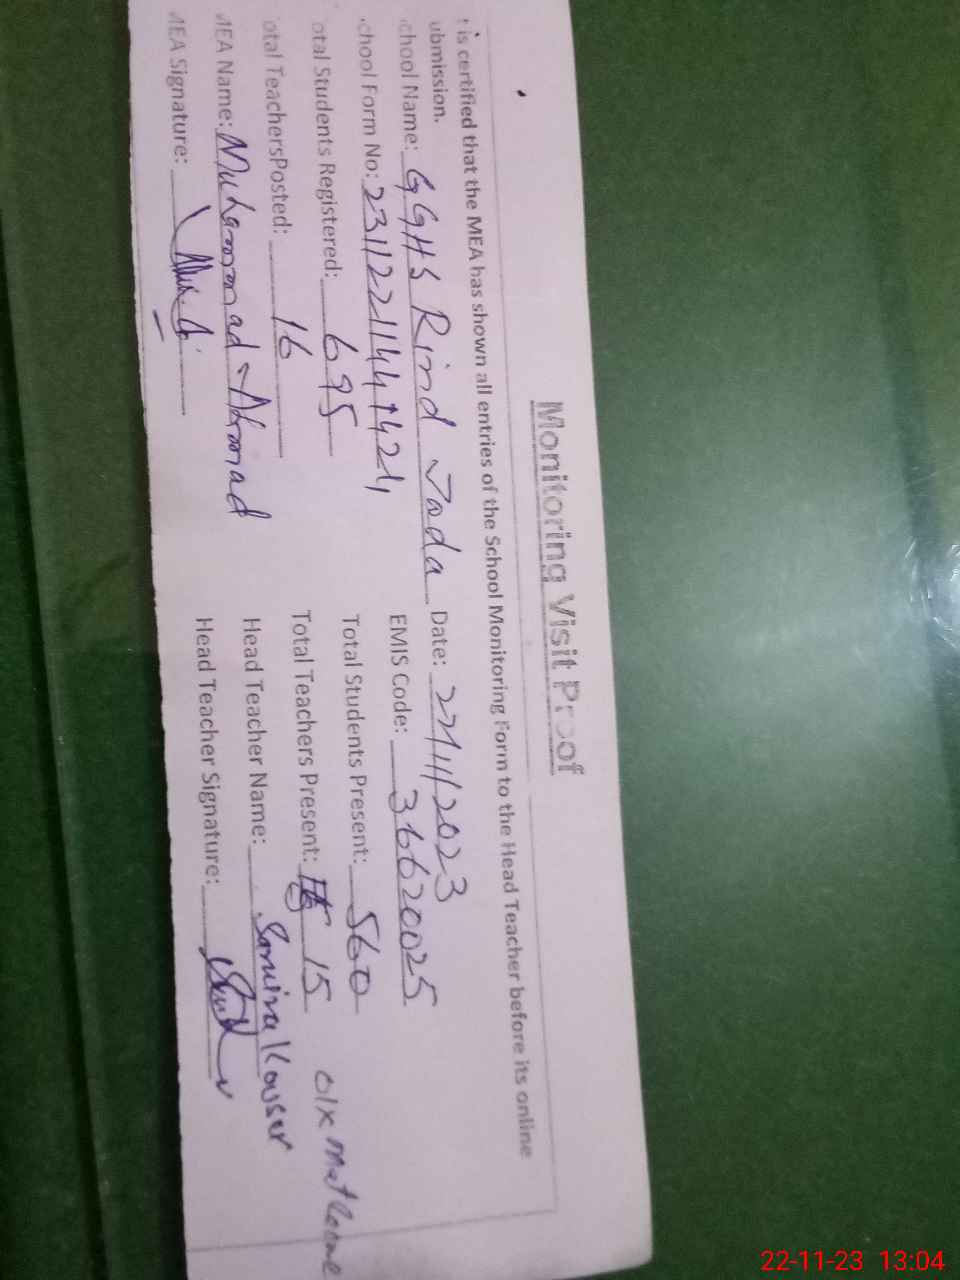 Monitoring Visit Proof
t is certified that the MEA has shown all entries of the School Monitoring Form to the Head Teacher before its online
ubmission.
chool Name: GGHS Rind Jada Date: 22/11/2023
chool Form No: EMIS Code: 36620025
otal Students Registered: 695 Total Students Present: 560
otal TeachersPosted: 16 Total Teachers Present: 15 01x Mat Leave
MEA Name: Muhammad Ahmad Head Teacher Name: Sumira Kouser
MEA Signature: Head Teacher Signature:
22-11-23 13:04